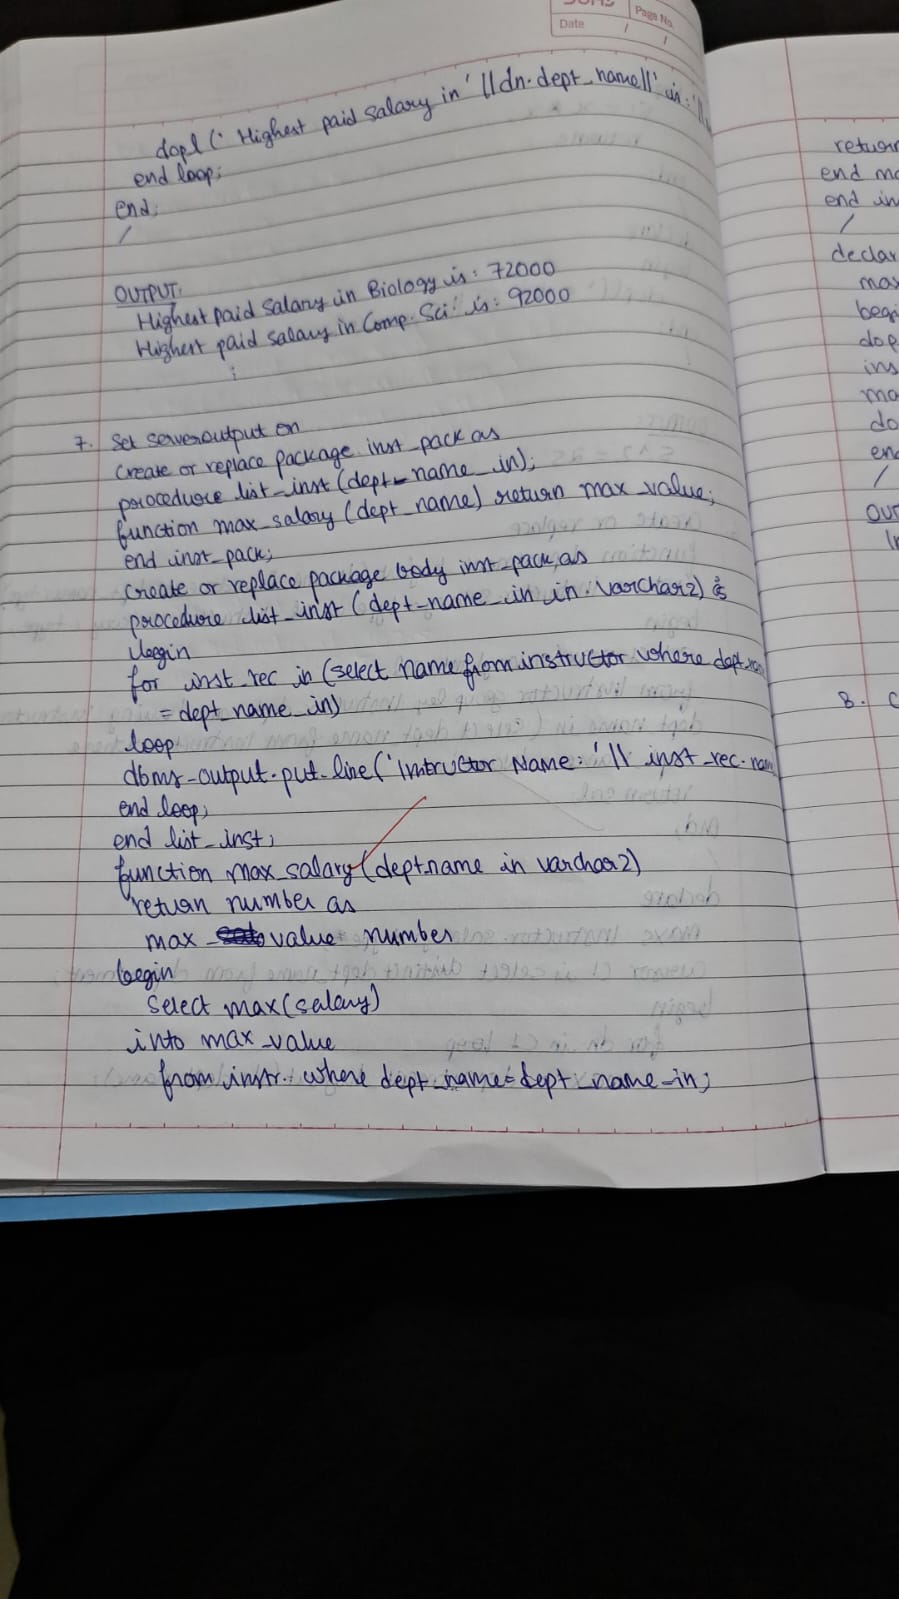 Date / /
Page No.
dopl (' Highest paid salary in ' || dn.dept_name||' is:'||
end loop;
end;
/
OUTPUT:
Highest paid salary in Biology is: 72000
Highest paid salary in Comp. Sci. is: 92000
:
7. Set serveroutput on
create or replace package inst_pack as
procedure list_inst (dept_name_in);
function max_salary (dept_name) return max_value;
end inst_pack;
create or replace package body inst_pack as
procedure list_inst (dept_name_in in varchar2) is
begin
for inst_rec in (select name from instructor where dept_
= dept_name_in)
loop
dbms_output.put_line('Instructor Name: '|| inst_rec.nam
end loop;
end list_inst;
function max_salary (dept_name in varchar2)
return number as
max_value number
begin
Select max(salary)
into max_value
from instr. where dept_name = dept_name_in;
return
end ma
end in
/
declar
max
begi
dop
ins
ma
do
en
/
OU
In
8. C